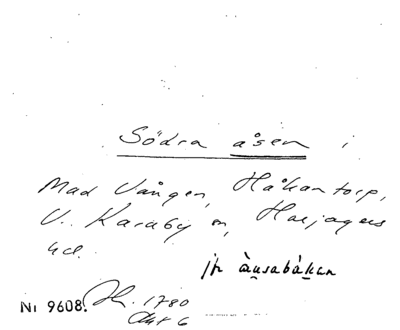 Södra åsen i
Mad Vången, Håkantorp,
V. Karaby sn, Harjagers
hd.
jfr àusabàkan
Nr 9608. Jh. 1780
Akt 6